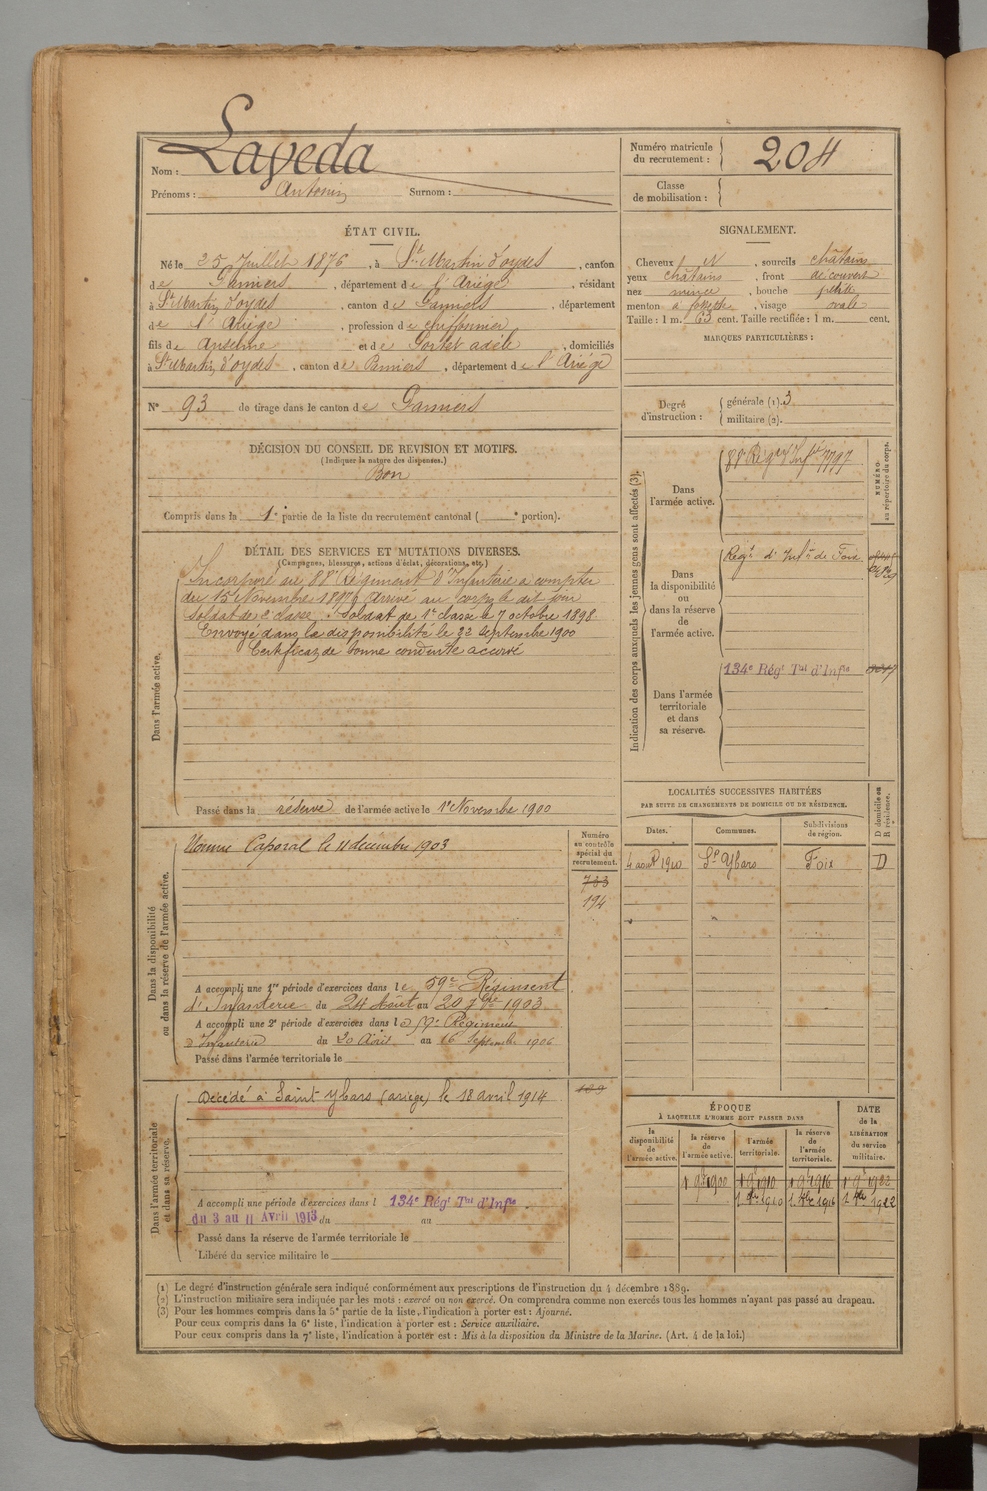 Nom : Laveda
Prénoms : Antonin Surnom :
Numéro matricule du recrutement : 204
Classe de mobilisation :
ÉTAT CIVIL.
Né le 25 Juillet 1876, à St Martin d'oydes, canton
de Pamiers, département de l'Ariège, résidant
à St Martin d'oydes, canton de Pamiers, département
de l'Ariège, profession de chiffonnier
fils de Anselme et de adèle, domiciliés
à St Martin d'oydes, canton de Pamiers, département de l'Ariège
N° 93 de tirage dans le canton de Pamiers
SIGNALEMENT.
Cheveux N, sourcils châtains
yeux châtains, front découvert
nez mince, bouche petite
menton à fossette, visage ovale
Taille : 1 m. 63 cent. Taille rectifiée : 1 m. cent.
MARQUES PARTICULIÈRES :
Degré d'instruction : générale (1). 3
militaire (2).
DÉCISION DU CONSEIL DE REVISION ET MOTIFS.
(Indiquer la nature des dispenses.)
Bon
Compris dans la 1e partie de la liste du recrutement cantonal ( e portion).
DÉTAIL DES SERVICES ET MUTATIONS DIVERSES.
(Campagnes, blessures, actions d'éclat, décorations, etc.)
Dans l'armée active.
Incorporé au 88e Régiment d'Infanterie à compter
du 15 Novembre 1897, arrivé au corps le dit jour
soldat de 2e classe. Soldat de 1e classe le 7 octobre 1898
Envoyé dans la disponibilité le 22 septembre 1900
Certificat de bonne conduite accordé
Passé dans la réserve de l'armée active le 1er Novembre 1900
Indication des corps auxquels les jeunes gens sont affectés (3).
NUMÉRO au répertoire du corps.
Dans l'armée active.
88e Régt d'Infie
Dans la disponibilité ou dans la réserve de l'armée active.
Régt d'Infie de Foix
Dans l'armée territoriale et dans sa réserve.
134e Régt Tal d'Infie
LOCALITÉS SUCCESSIVES HABITÉES
PAR SUITE DE CHANGEMENTS DE DOMICILE OU DE RÉSIDENCE.
Dates. Communes. Subdivisions de région. D domicile ou R résidence.
4 août 1910 St Ybars Foix D
Dans la disponibilité ou dans la réserve de l'armée active.
Nommé Caporal le 11 décembre 1903
Numéro au contrôle spécial du recrutement.
733
194
A accompli une 1re période d'exercices dans le 59e Régiment
d'Infanterie du 24 Août au 20 7bre 1903
A accompli une 2e période d'exercices dans le 59e Régiment
d'Infanterie du 20 Août au 16 Septembre 1906
Passé dans l'armée territoriale le
Dans l'armée territoriale et dans sa réserve.
Décédé à Saint Ybars (ariège) le 18 avril 1914
A accompli une période d'exercices dans l 134e Régt Tal d'Infie
du 3 au 11 Avril 1913 du au
Passé dans la réserve de l'armée territoriale le
Libéré du service militaire le
ÉPOQUE
À LAQUELLE L'HOMME DOIT PASSER DANS
la disponibilité de l'armée active.
la réserve de l'armée active.
l'armée territoriale.
la réserve de l'armée territoriale.
DATE de la LIBÉRATION du service militaire.
1 9bre 1900 1 9bre 1910 1 9bre 1916 1 9bre 1922
1 8bre 1910 1 8bre 1916 1 8bre 1922
(1) Le degré d'instruction générale sera indiqué conformément aux prescriptions de l'instruction du 4 décembre 1889.
(2) L'instruction militaire sera indiquée par les mots : exercé ou non exercé. On comprendra comme non exercés tous les hommes n'ayant pas passé au drapeau.
(3) Pour les hommes compris dans la 5e partie de la liste, l'indication à porter est : Ajourné.
Pour ceux compris dans la 6e liste, l'indication à porter est : Service auxiliaire.
Pour ceux compris dans la 7e liste, l'indication à porter est : Mis à la disposition du Ministre de la Marine. (Art. 4 de la loi.)